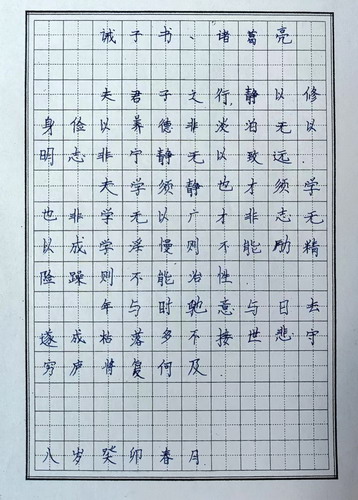 诫子书、诸葛亮
夫君子文行,静以修
身俭以养德非淡泊无以
明志非宁静无以致远.
夫学须静也才须学
也非学无以广才非志无
以成学淫慢则不能励精
险躁则不能治性.
年与时驰意与日去
遂成枯落多不接世悲守
穷庐将复何及.
八岁癸卯春月